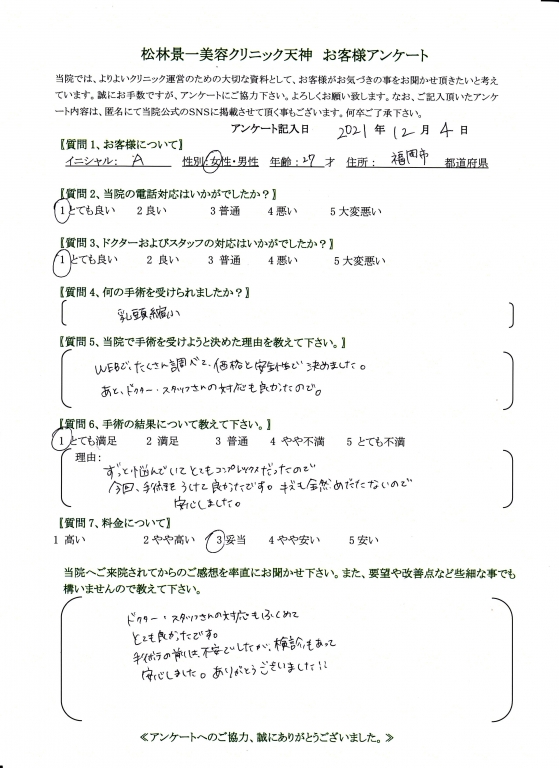 松林景一美容クリニック天神 お客様アンケート
当院では、よりよいクリニック運営のための大切な資料として、お客様がお気づきの事をお聞かせ頂きたいと考え
ています。誠にお手数ですが、アンケートにご協力下さい。よろしくお願い致します。なお、ご記入頂いたアンケ
ート内容は、匿名にて当院公式のSNSに掲載させて頂く事もございます。何卒ご了承下さい。
アンケート記入日 2021 年 12 月 4 日
【質問1、お客様について】
イニシャル: A 性別:女性・男性 年齢:27才 住所: 福岡市 都道府県
【質問2、当院の電話対応はいかがでしたか?】
1とても良い 2良い 3普通 4悪い 5大変悪い
【質問3、ドクターおよびスタッフの対応はいかがでしたか?】
1とても良い 2 良い 3 普通 4悪い 5大変悪い
【質問4、何の手術を受けられましたか?】
乳頭縮小
【質問5、当院で手術を受けようと決めた理由を教えて下さい。】
WEBで、たくさん調べて、価格と安全性で決めました。
あと、ドクター・スタッフさんの対応も良かったので。
【質問6、手術の結果について教えて下さい。】
1とても満足 2 満足 3 普通 4 やや不満 5 とても不満
理由:
ずっと悩んでいてとてもコンプレックスだったので
今回、手術をうけて良かったです。キズも全然めだたないので
安心しました。
【質問7、料金について】
1 高い 2やや高い 3妥当 4やや安い 5安い
当院へご来院されてからのご感想を率直にお聞かせ下さい。また、要望や改善点など些細な事でも
構いませんので教えて下さい。
ドクター・スタッフさんの対応もふくめて
とても良かったです。
手術の前は、不安でしたが、検診もあって
安心しました。ありがとうございました!!
≪アンケートへのご協力、誠にありがとうございました。≫